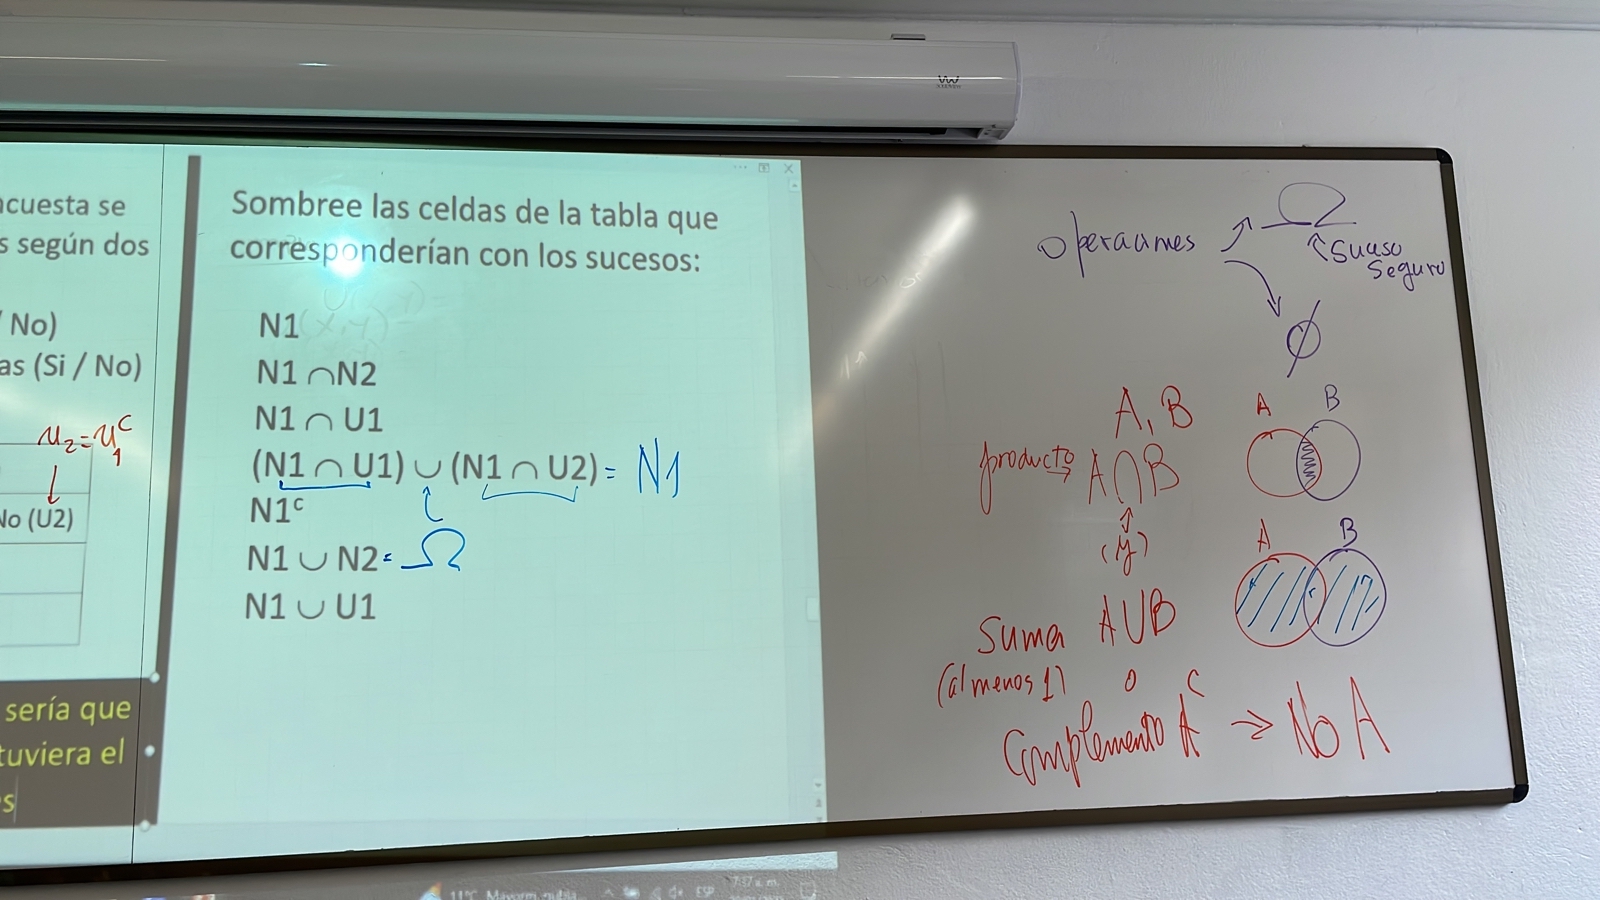 ncuesta se
s según dos
No)
as (Si / No)
u₂=u₁ᶜ
No (U2)
sería que
tuviera el
s
Sombree las celdas de la tabla que
corresponderían con los sucesos:
N1
N1 ∩N2
N1 ∩ U1
(N1 ∩ U1) ∪ (N1 ∩ U2) = N1
N1ᶜ
N1 ∪ N2 = Ω
N1 ∪ U1
operaciones
Ω
Suceso
Seguro
∅
A, B
producto → A∩B
(y)
A B
Suma A∪B
(al menos 1) o
A B
Complemento Aᶜ ⇒ No A
11°C
ESP
7:37 a. m.